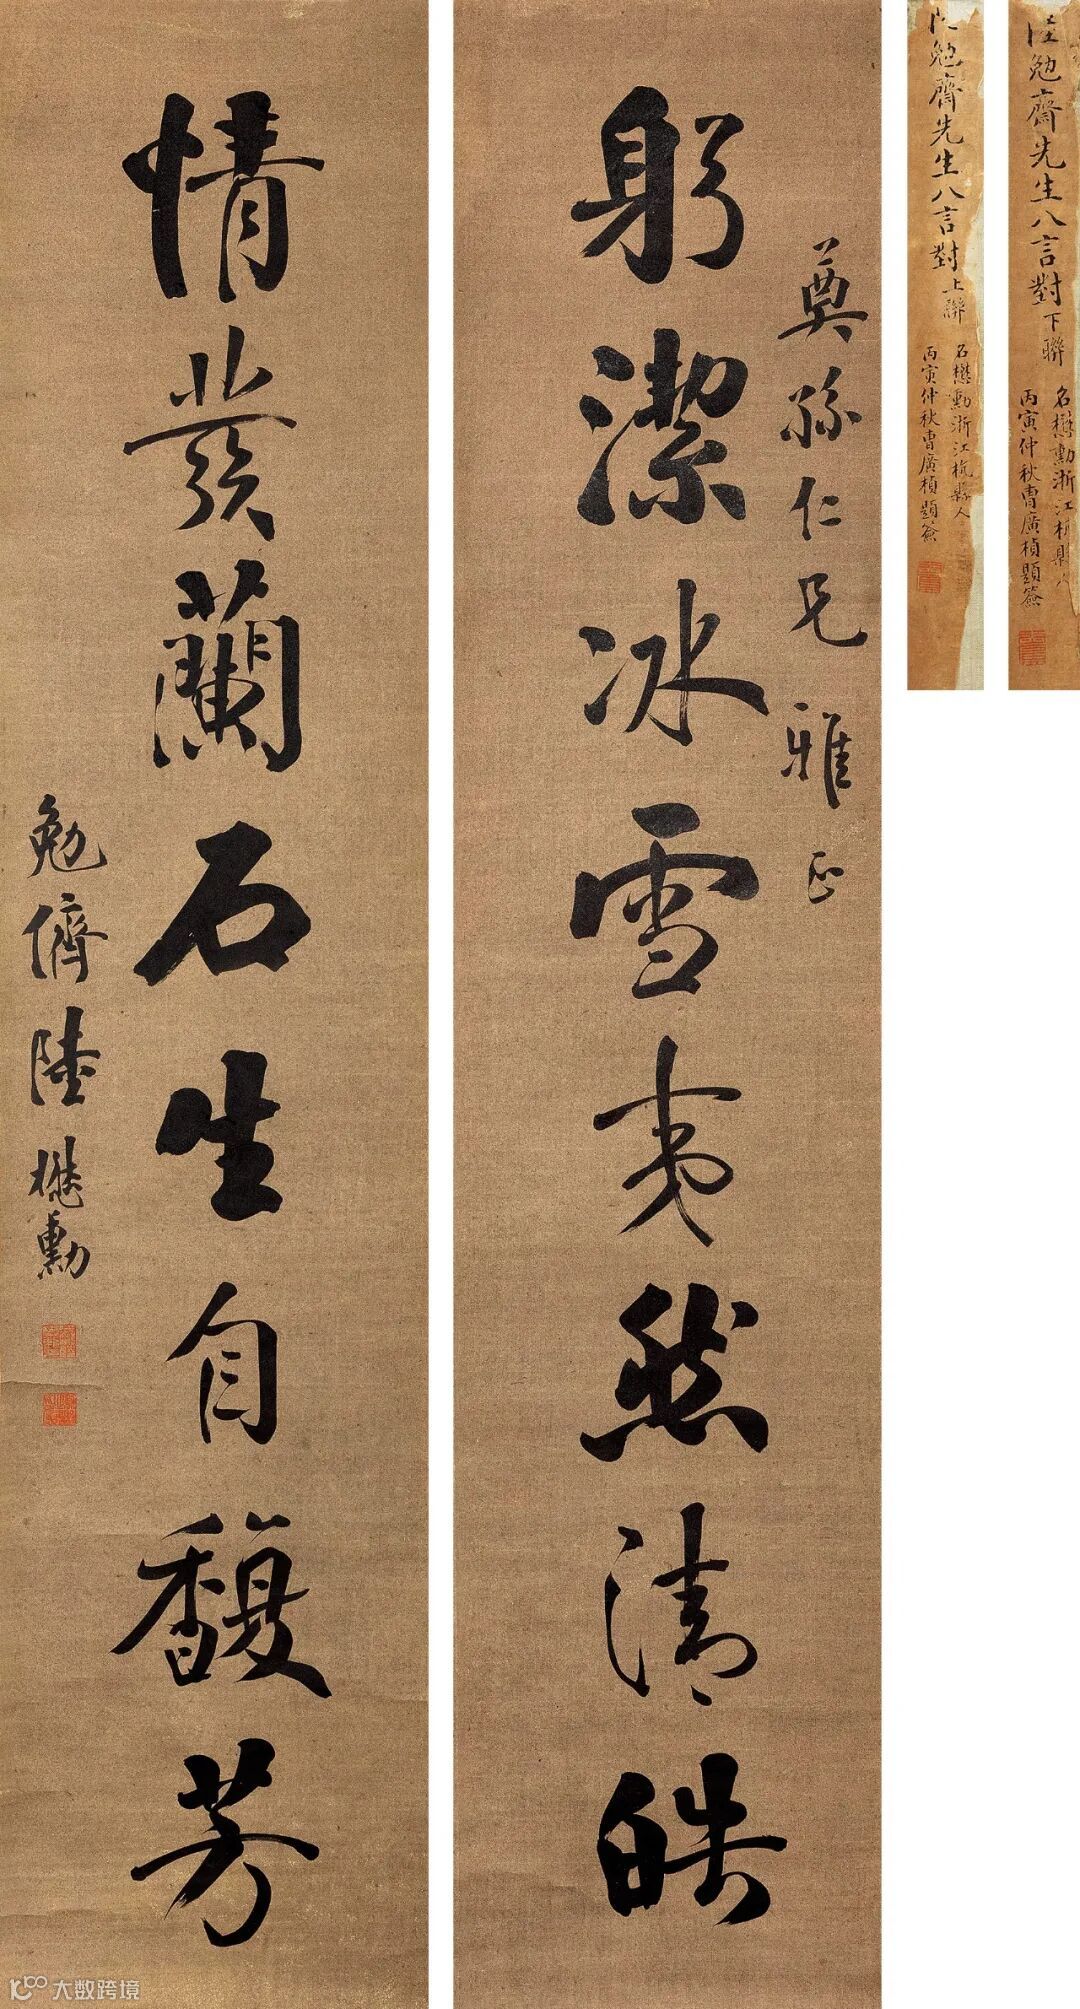 奠孫仁兄 雅正
躬潔冰雪夷然清皓
情發蘭石生自馥芳
勉儕陸懋勳
勉齋先生八言對上聯
名懋勳浙江杭縣人
丙寅仲秋曹廣楨題簽
陸勉齋先生八言對下聯
名懋勳浙江杭縣人
丙寅仲秋曹廣楨題簽
大数跨境